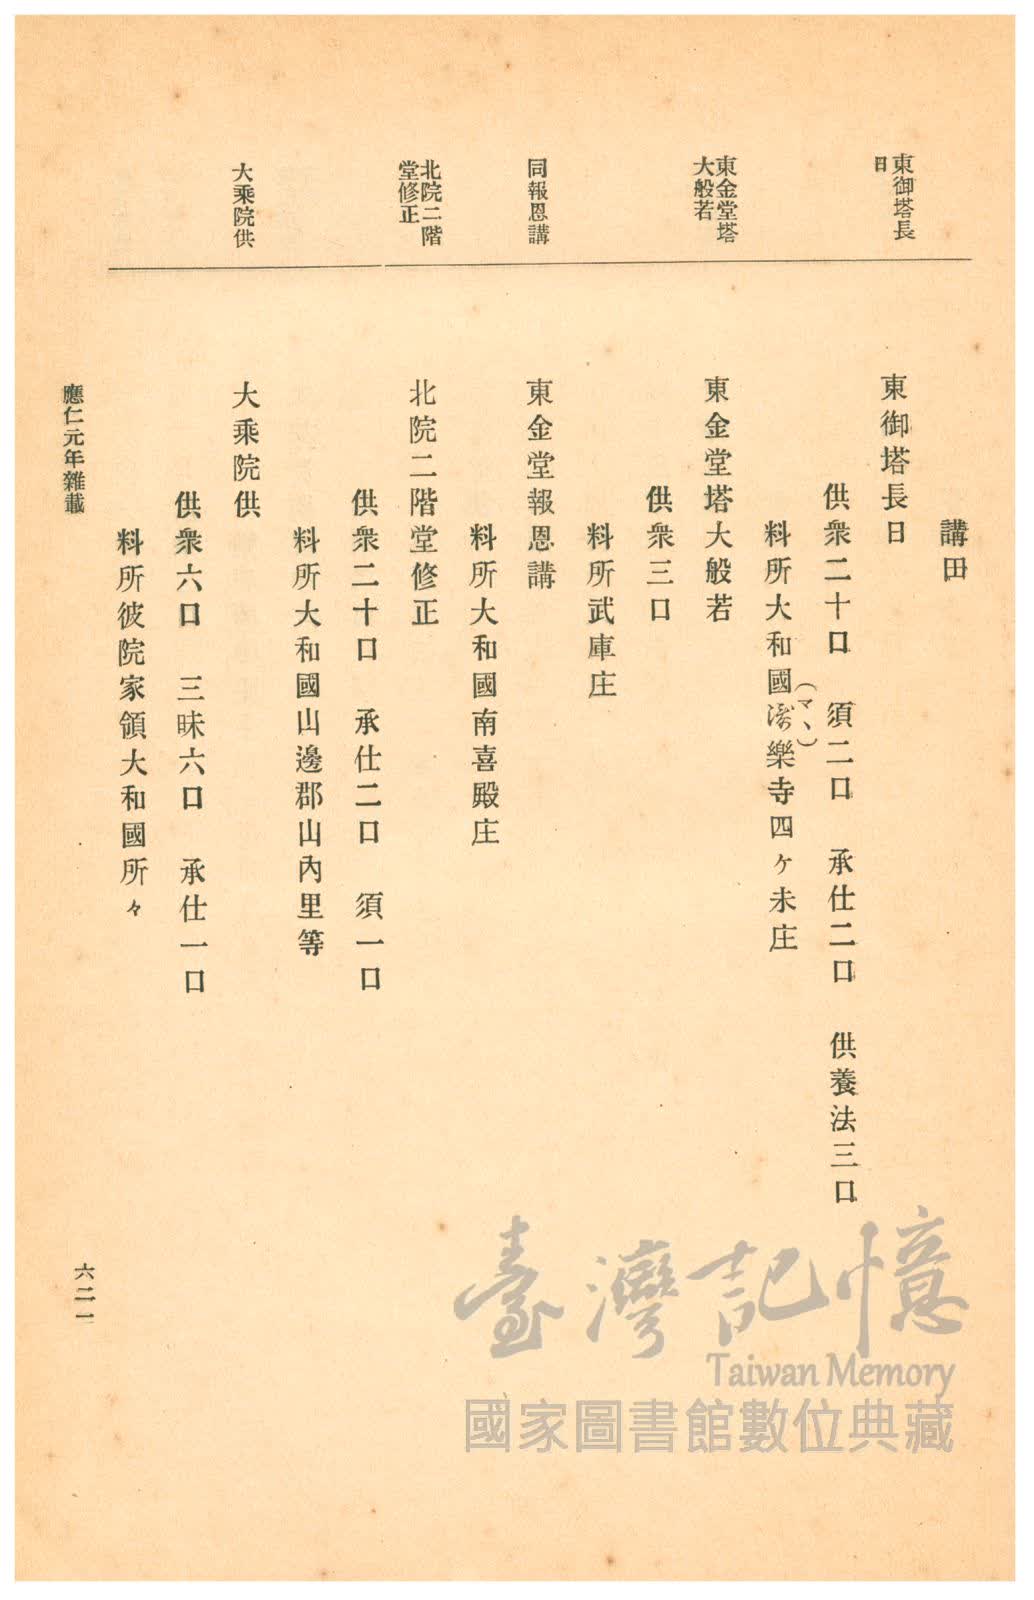 東御塔長
日
東金堂塔
大般若
同報恩講
北院二階
堂修正
大乘院供
講田
東御塔長日
供衆二十口　須二口　承仕二口　供養法三口
料所大和國樂寺四ヶ未庄
(マヽ)
東金堂塔大般若
供衆三口
料所武庫庄
東金堂報恩講
料所大和國南喜殿庄
北院二階堂修正
供衆二十口　承仕二口　須一口
料所大和國山邊郡山內里等
大乘院供
供衆六口　三昧六口　承仕一口
料所彼院家領大和國所々
應仁元年雜載
六二一
臺灣記憶
Taiwan Memory
國家圖書館數位典藏